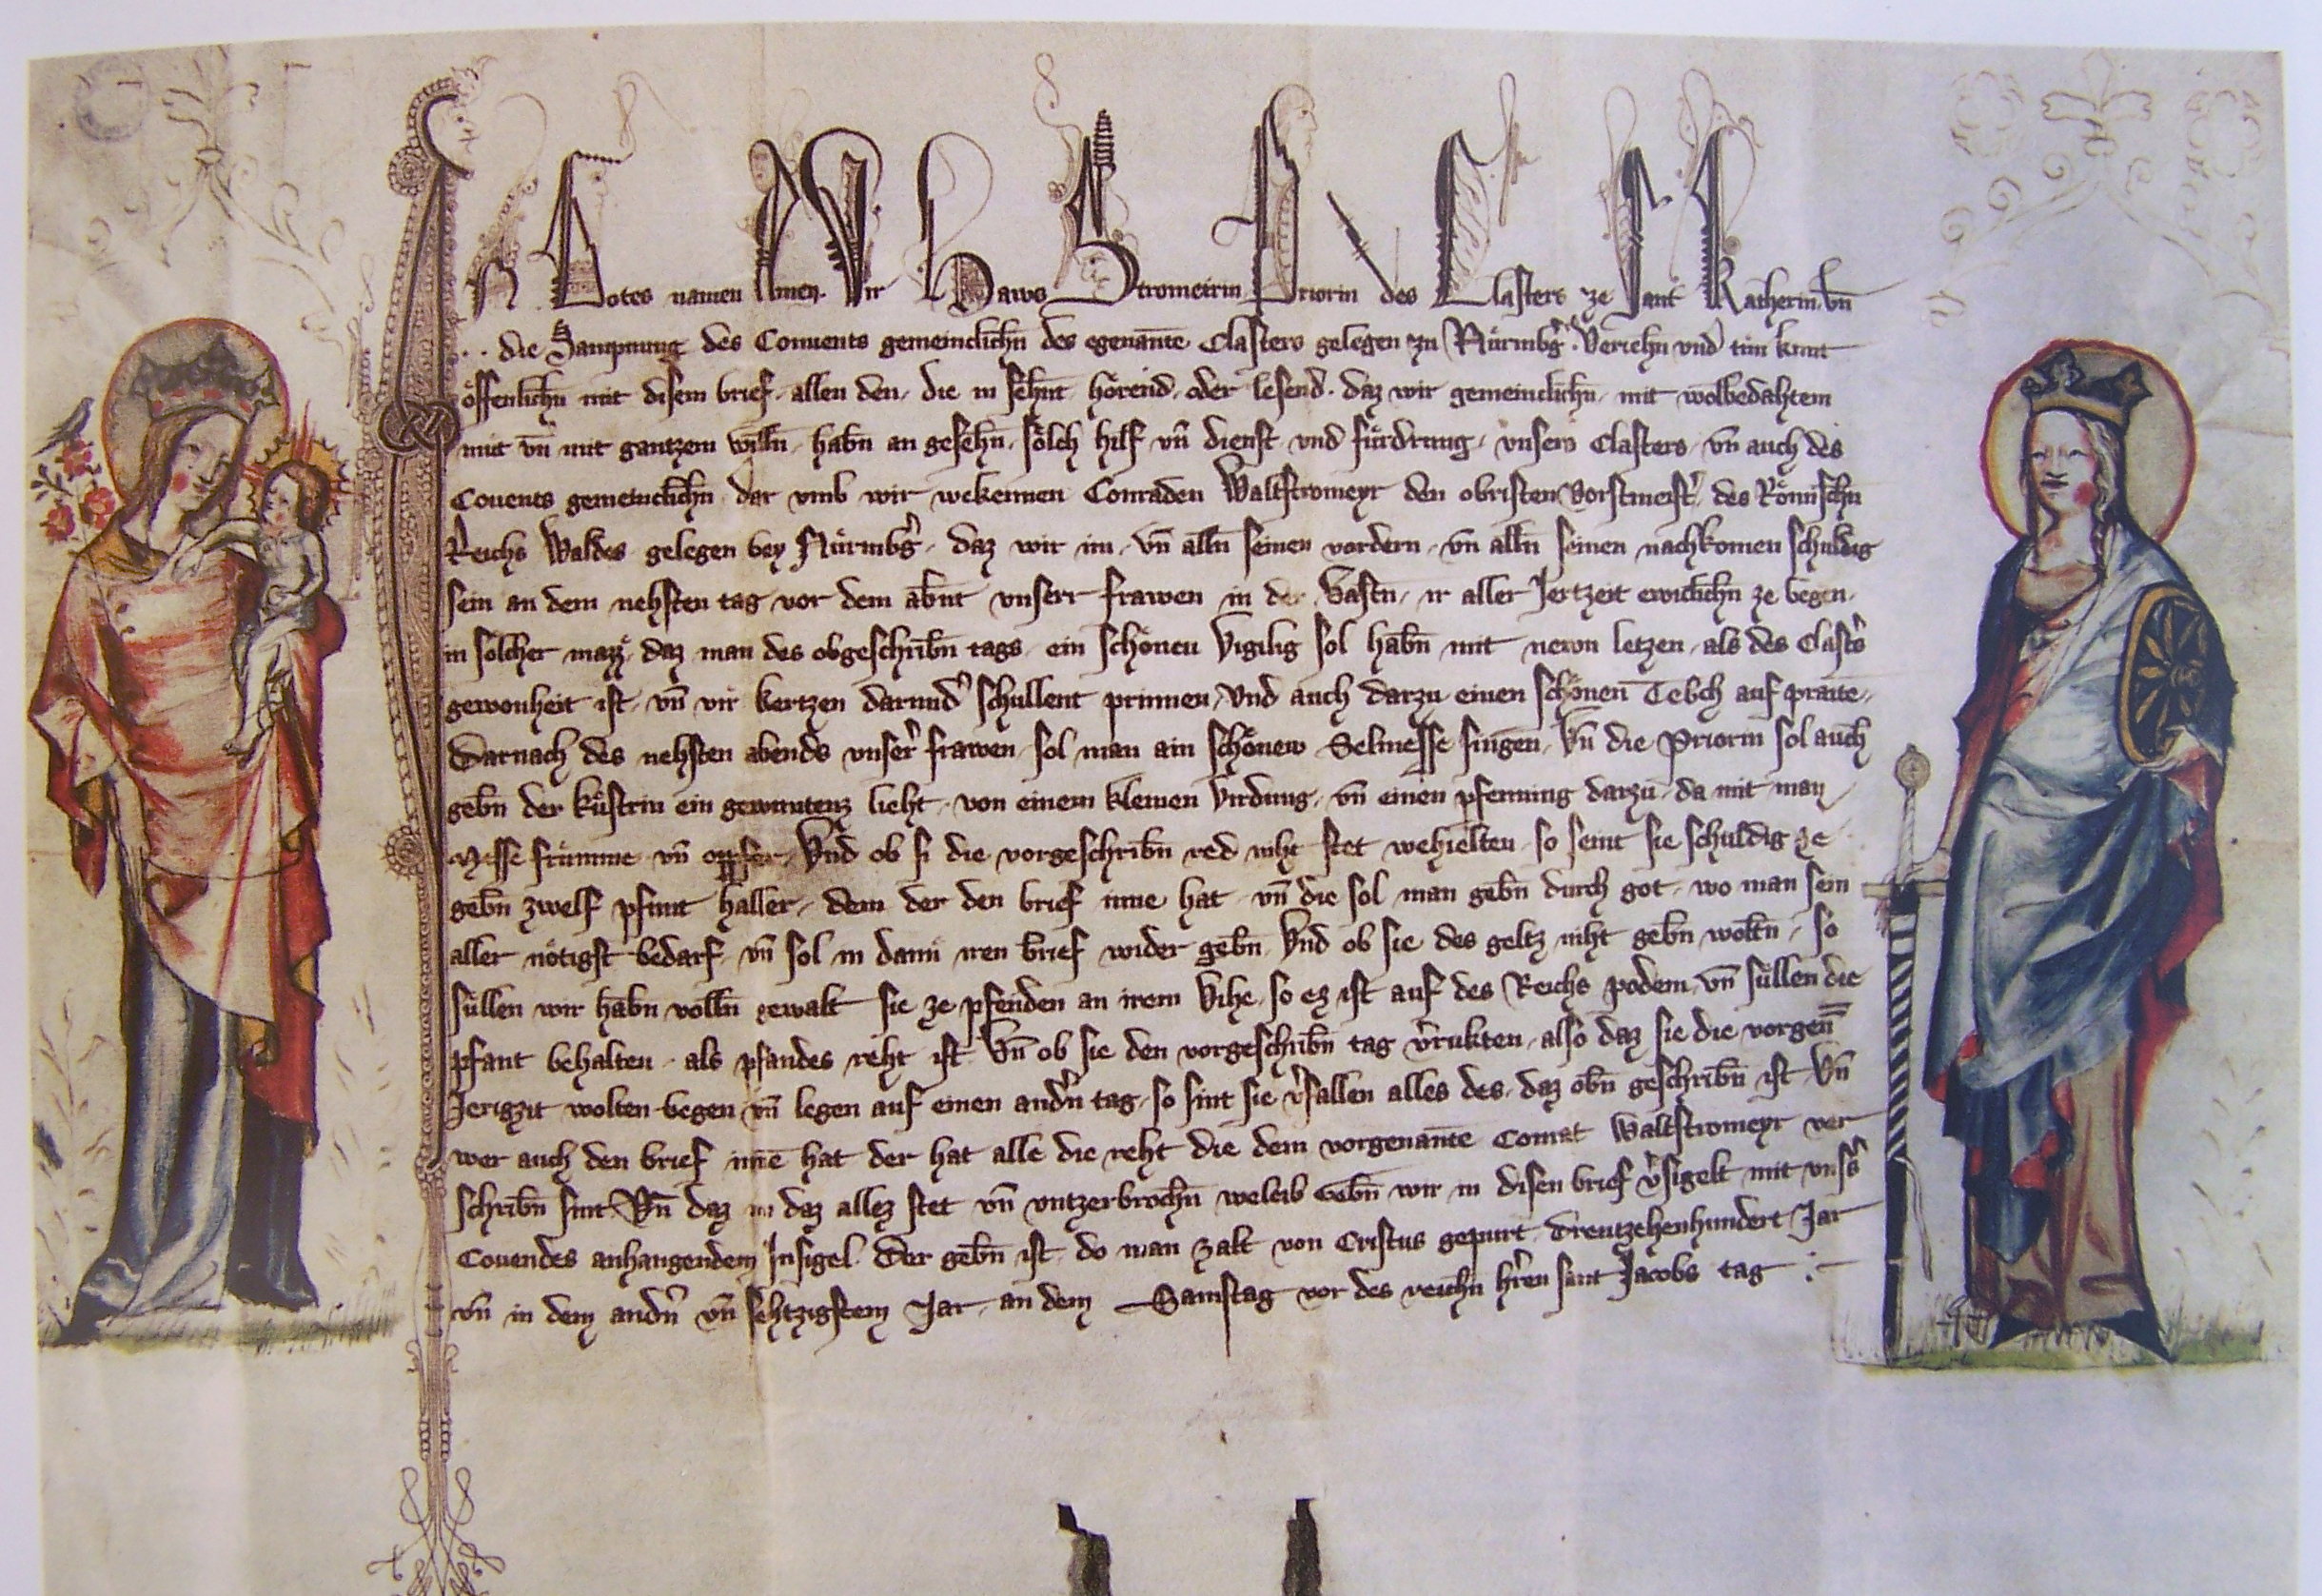 In Gotes namen Amen. Wir Haws Stromeirin Priorin des Closters ze sant Katherin. vn̄
.. die Sampnung des Conuents gemeinclichn̄ des egenante Closters gelegen zu Nu᷎rmbg̉. Veriehn vnd tun kunt
öffenlichn̄ mit disem brief. allen den. die in sehnt hörend. oder lesend. daz wir gemeinclichn̄. mit wolbedahtem
mut vn̄ mit gantzem willn̄. habn̄ an gesehn̄. sölch hilf vn̄ dienst. vnd fürdrung. vnsers Closters. vn̄ auch des
Couents gemeinclichn̄. dar vmb wir wekennen Conraden Waltstromeyr den obristen Vorstmeist̉. des Römischn
Reichs Waldes gelegen bey Nürmbg̉. daz wir im. vn̄ alln̄ seinen vordern. vn̄ alln̄ seinen nachkomen schuldig
sein an dem nehsten tag vor dem abn̄t vnserr frawen in der Vastn̄. ir aller Jertzeit ewiclichn̄ ze begen.
in solcher mazz. daz man des obgeschribn̄ tags. ein schönen Vigilig sol habn̄ mit newn letzen. als des Clost̉s
gewonheit ist. vn̄ vir kertzen darund̉ schullent prinnen. Vnd auch darzu einen schönen Tebch auf praite.
Darnach des nehsten abends vnser̉ frawen. sol man ain schönew Selmesse singen. Vn̄ die Priorin sol auch
gebn̄ der küstrin ein gewuntenz lieht. von einem kleinen Virdung. vn̄ einen pfenning darzu. da mit man
Messe frümme vn̄ opfer. Vnd ob si die vorgeschribn̄ red niht stet wehielten. so seint sie schuldig ze
gebn̄ zwelf pfunt haller. dem der den brief inne hat. vn̄ die sol man gebn̄ durch got. wo man sein
aller nötigst bedarf. vn̄ sol in dann iren brief wider gebn̄. Vnd ob sie des geltz niht gebn̄ woltn̄. so
süllen wir habn volln̄ gewalt sie ze pfenden an irem Vihe. so ez ist auf des Reichs podem. vn̄ süllen die
pfant behalten. als pfandes reht ist. Vn̄ ob sie den vorgeschribn̄ tag v̉rukten. also daz sie die vorgen̄
Jerigzit wolten begen vn̄ legen auf einen andn̉ tag. so sint sie v̉fallen alles des. daz obn̄ geschribn̄ ist. Vn̄
wer auch den brief inne hat der hat alle die reht die dem vorgenante Conrat Waltstromeyr ver
schribn̄ sint. Vn̄ daz in daz allez stet vn̄ vntzerbrochn̄ weleib Gebn̄ wir in disen brief v̉sigelt mit vnss̉
Couendes anhangendem Insigel. Der gebn̄ ist. do man zalt von Cristus gepurt. Dreutzehenhundert Jar
vn̄ in dem andn̉ vn̄ sehtzigstem Jar. an dem Samstag vor des reichn̄ hr̉en sant Jacobs tag